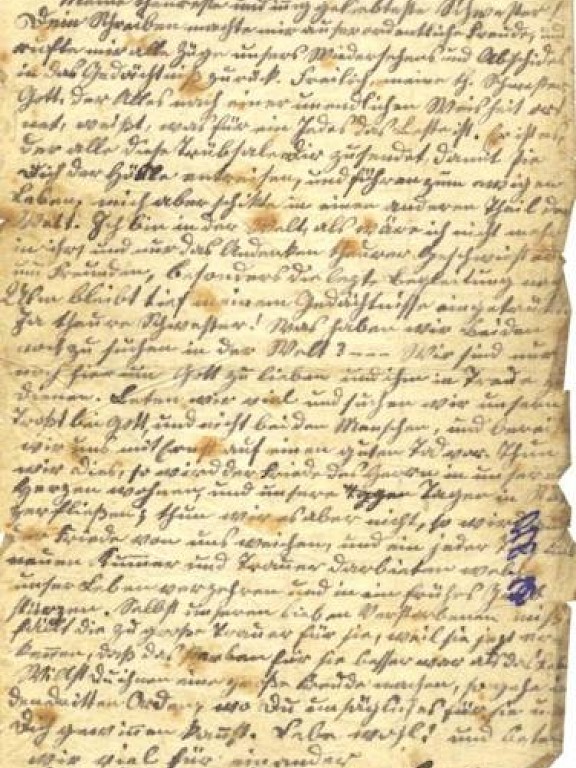 Meine theureste und innig geliebteste Schwester!
Dein Schreiben machte mir außerordentliche Freude,
rufte mir alle Züge unsers Wiedersehens und Abschides
in das Gedächtniß zurück. Freilich, meine th. Schwester
Gott, der Alles nach einer unendlichen Weisheit ord
net, weißt, was für ein Jedes das Beste ist. Er ist es,
der alle diese Trübsale Dir zusendet, damit sie
Dich der Hölle entreißen, und führen zum ewigen
Leben, mich aber schikte in einen anderen Theil der
Welt. Ich bin in der Welt, als wäre ich nicht mehr
in ihr, und nur das Andenken theurer Geschwister
und Freunden, besonders die lezte Begleitung
Ulm bleibt tief meinem Gedächtnisse
Ja theure Schwester! Was haben wir beiden
noch zu suchen in der Welt? --- Wir sind nur
noch hier um Gott zu lieben und ihm in Treue
dienen. Beten wir viel und suchen wir unsern
Trost bei Gott, und nicht bei den Menschen, und berei
wir uns mit Ernst auf einen guten Tod vor. Thun
wir dies, so wird der Friede des Herrn in unsern
Herzen wohnen, und unsere Tage in
verfließen; thun wir es aber nicht, so wird
der Friede von uns weichen, und ein jeder
neuen Kummer und Trauer darbieten
unser Leben verzehren und in ein frühes
stürzen. Selbst unseren lieben Verstorbenen
die zu große Trauer für sie, weil sie jezt er
kennen, daß das Sterben für sie besser war als das
Willst Du ihnen eine große Freude machen, so gehe
den dritten Orden, wo Du unsägliches für sie u
Dich gewinnen kannst. Lebe wohl! und beten
wir viel für einander